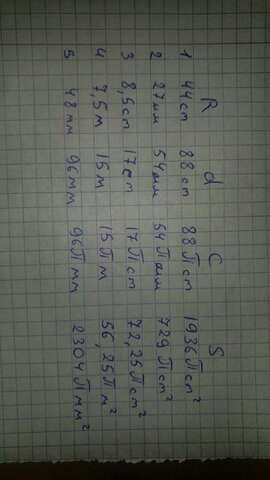 R d C S
1 44 cm 88 cm 88π cm 1936π cm²
2 27 мм 54 мм 54π мм 729π cm²
3 8,5 cm 17 cm 17π cm 72,25π cm²
4 7,5 м 15 м 15π м 56,25π м²
5 48 мм 96 мм 96π мм 2304π мм²